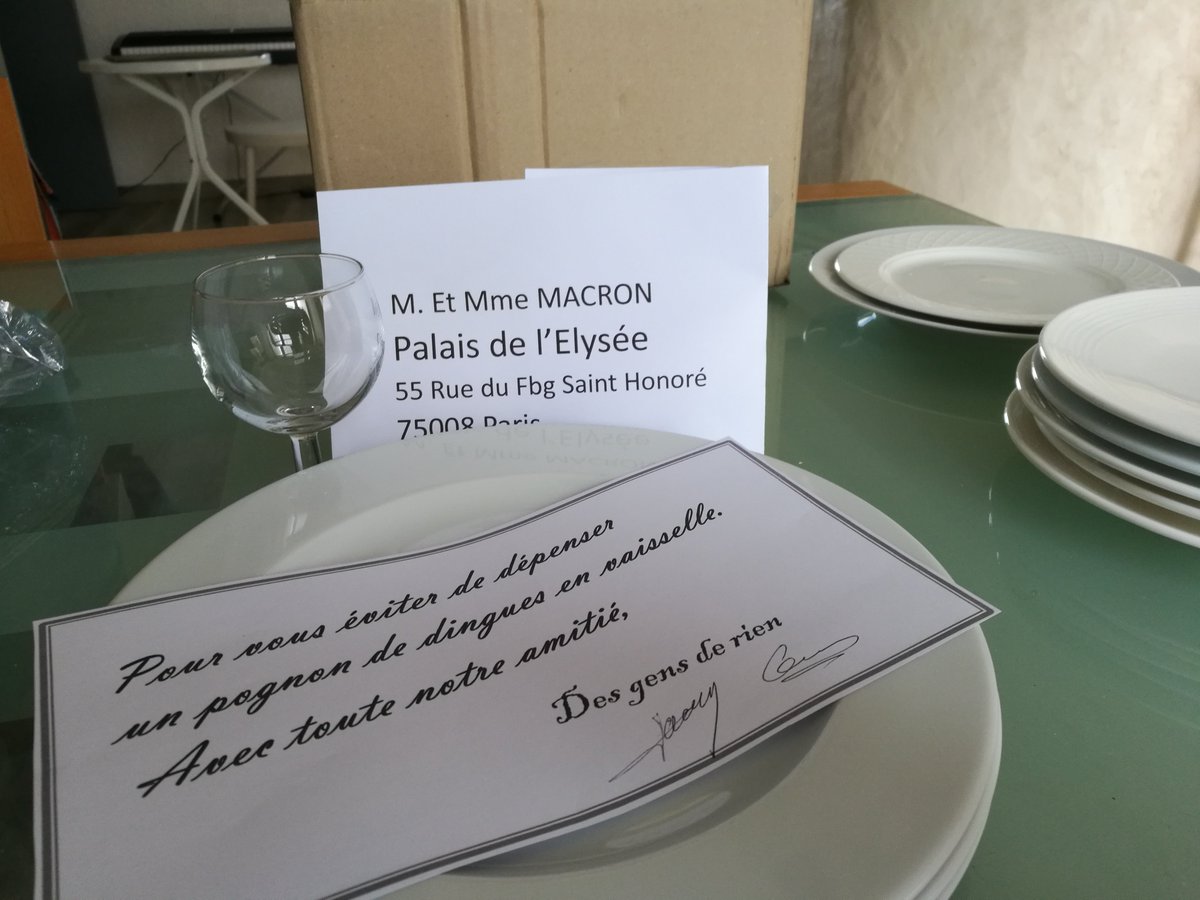 M. Et Mme MACRON
Palais de l'Elysée
55 Rue du Fbg Saint Honoré
75008 Paris
Pour vous éviter de dépenser
un pognon de dingues en vaisselle.
Avec toute notre amitié,
Des gens de rien